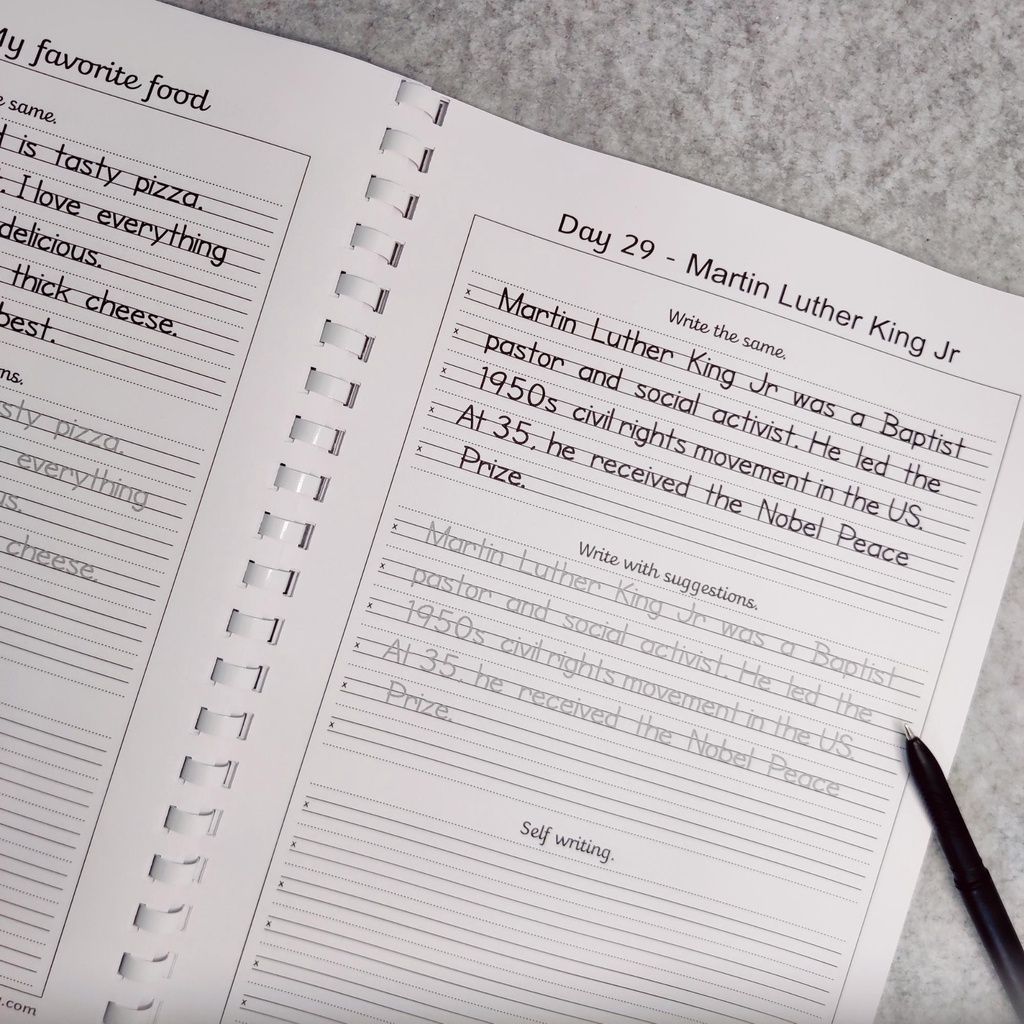 My favorite food
same.
is tasty pizza.
I love everything
delicious.
thick cheese.
best.
pizza.
everything
cheese.
.com
Day 29 - Martin Luther King Jr
Write the same.
Martin Luther King Jr was a Baptist
pastor and social activist. He led the
1950s civil rights movement in the US.
At 35, he received the Nobel Peace
Prize.
Write with suggestions.
Martin Luther King Jr was a Baptist
pastor and social activist. He led the
1950s civil rights movement in the US.
At 35, he received the Nobel Peace
Prize.
Self writing.